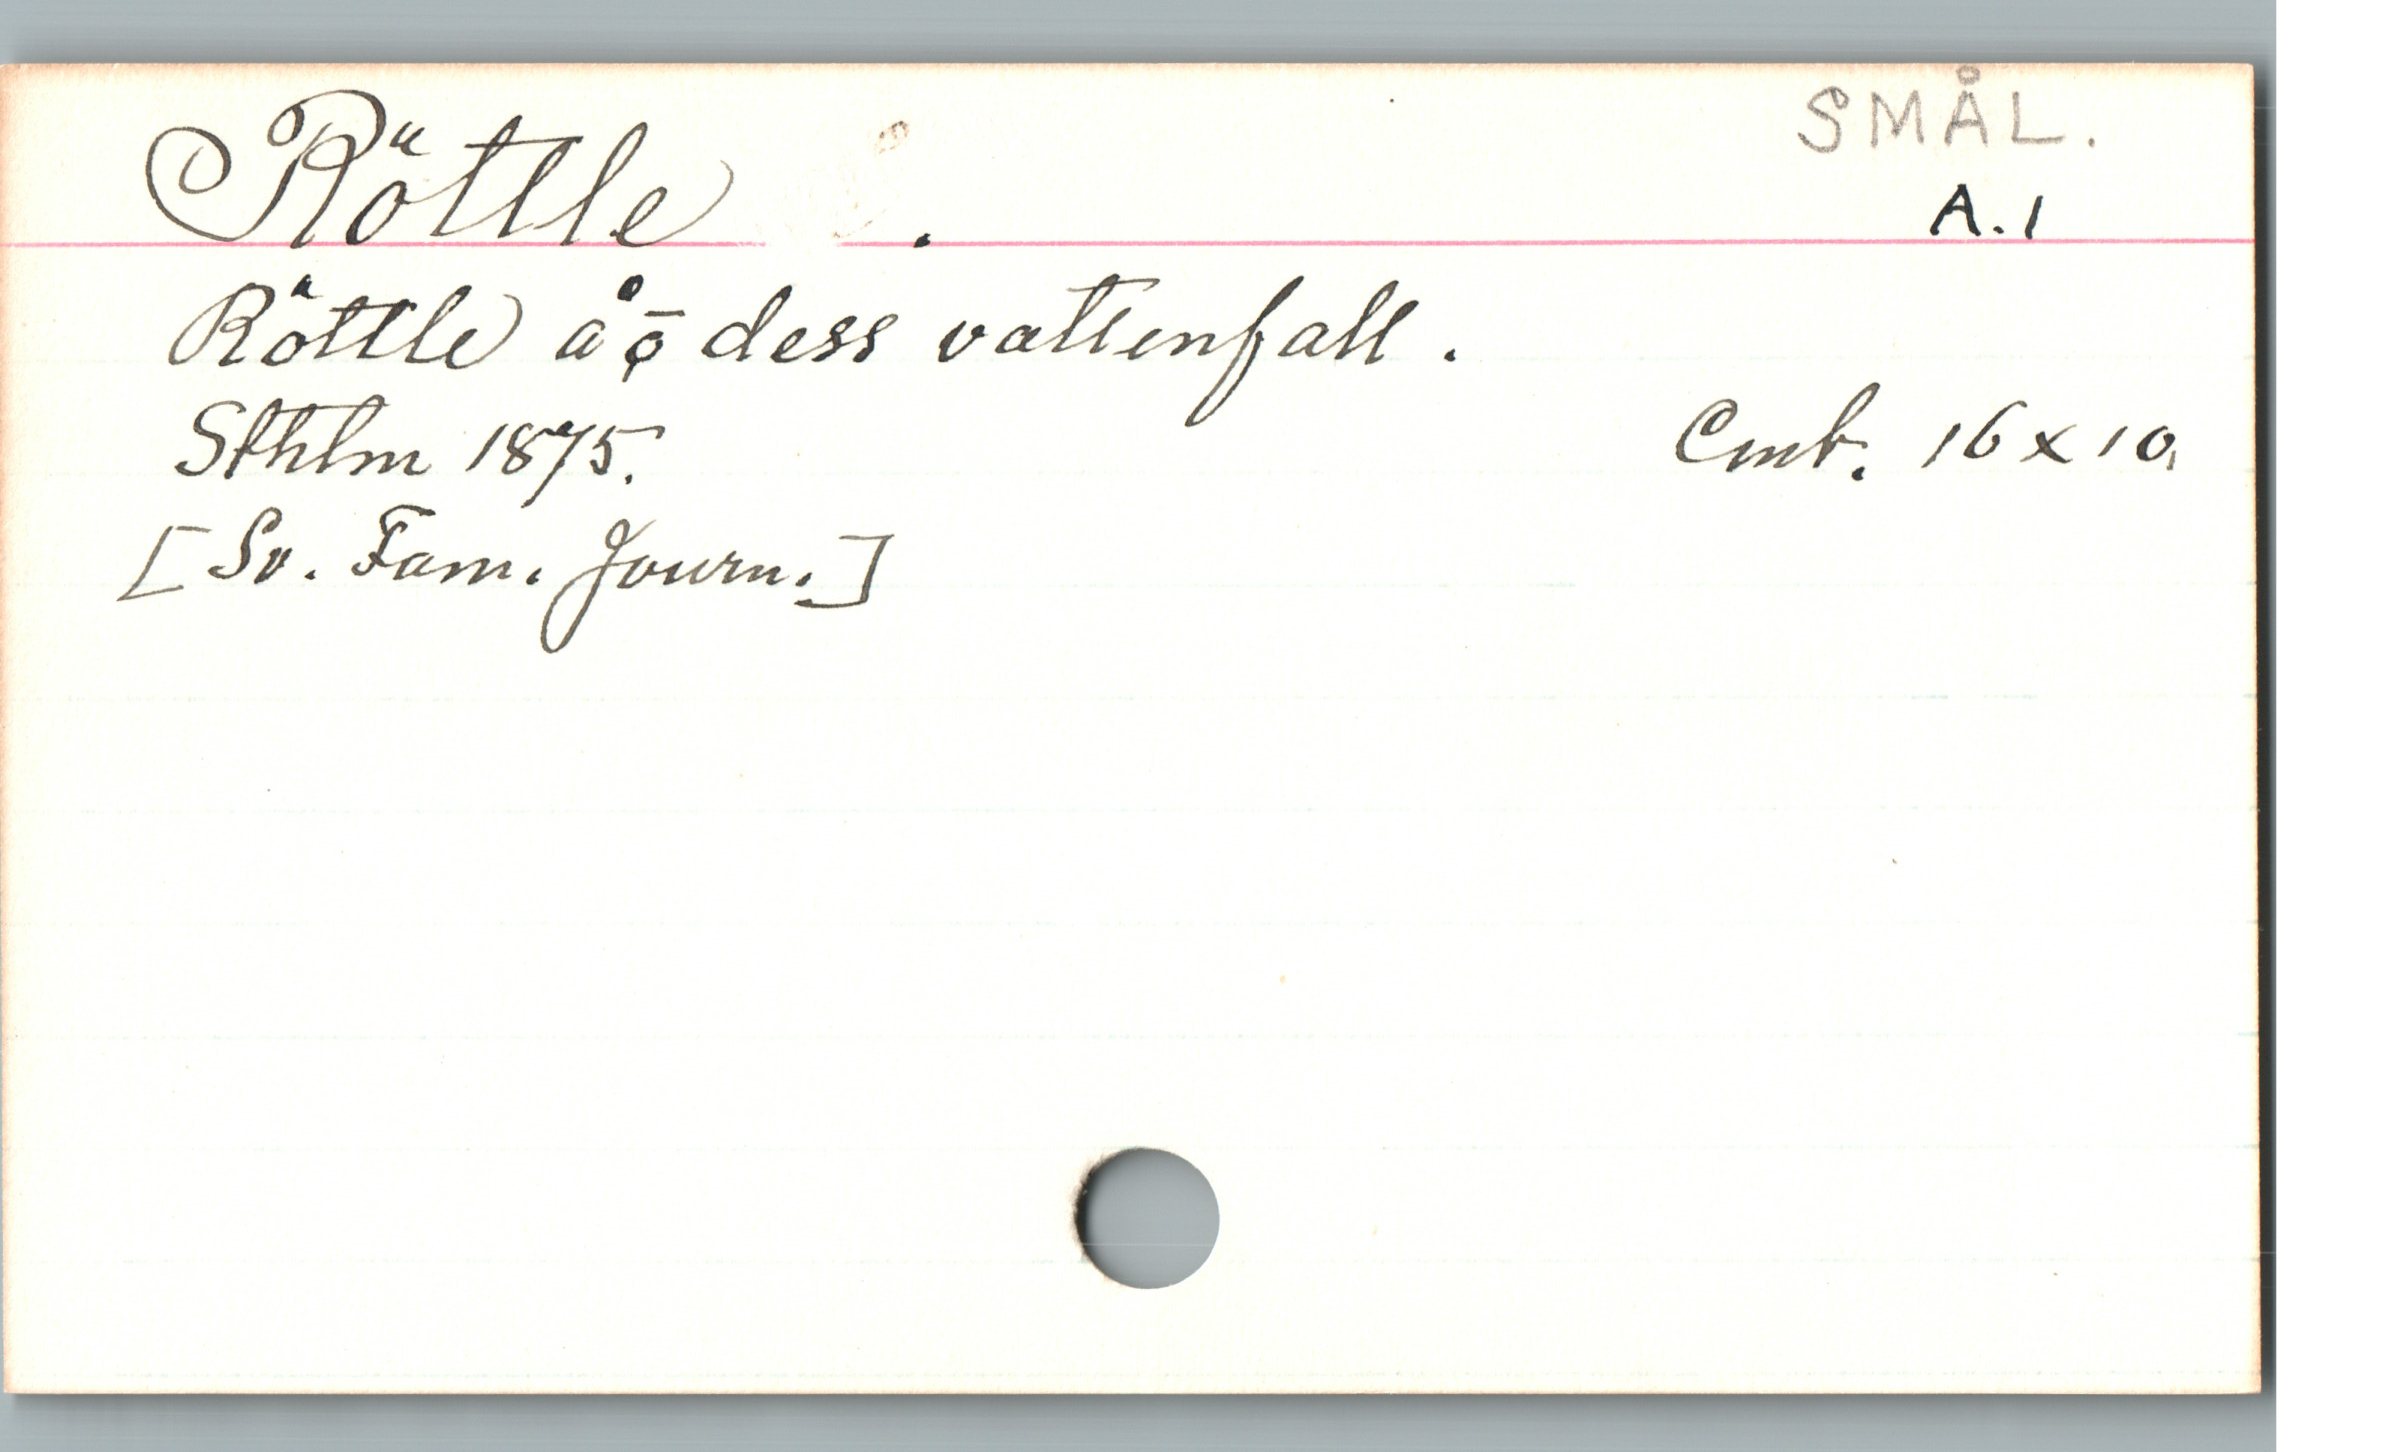 SMÅL.
Röttle .
A.1
Röttle å ō dess vattenfall.
Sthlm 1875.
Cmb. 16x10,
[Sv. Fam. Journ.]